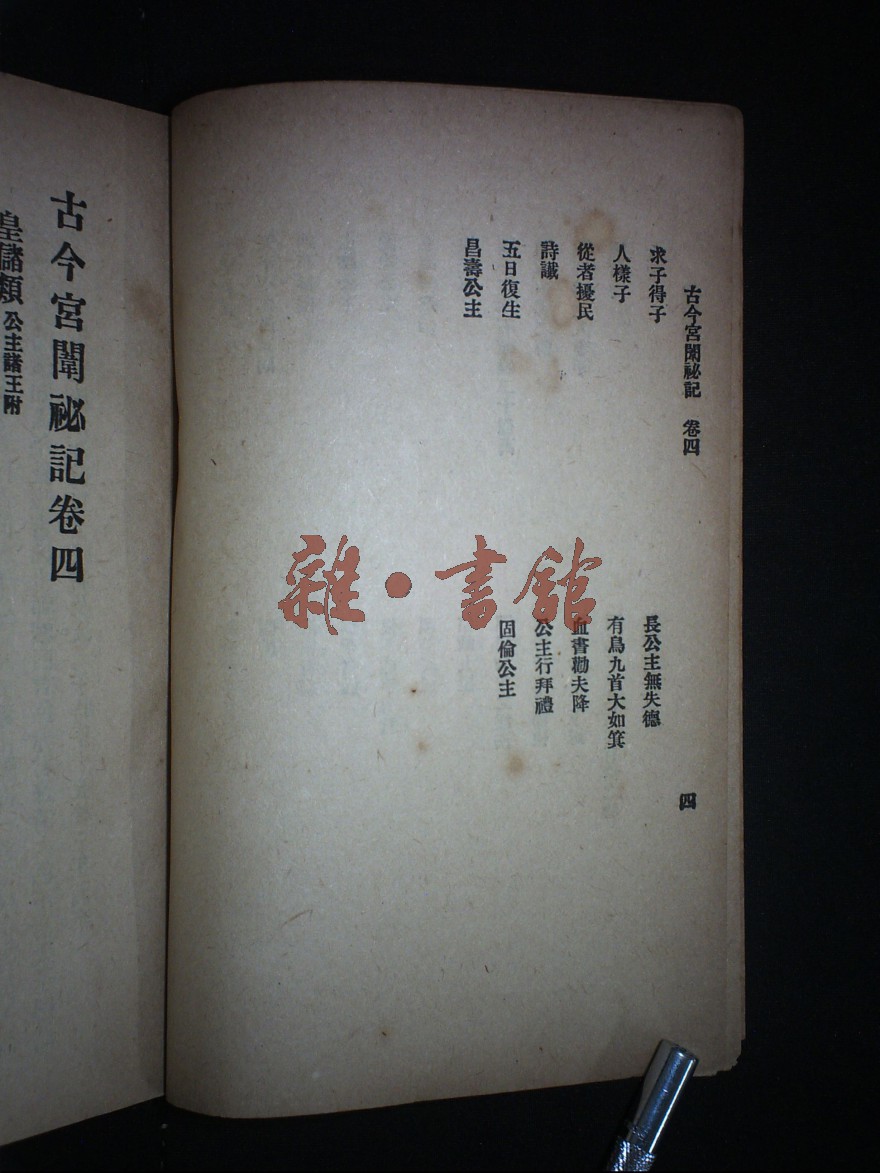 古今宮闈祕記 卷四
四
求子得子
長公主無失德
人樣子
有鳥九首大如箕
從者擾民
血書勸夫降
詩讖
公主行拜禮
五日復生
固倫公主
昌壽公主
古今宮闈祕記卷四
皇儲類 公主諸王附
雜·書館